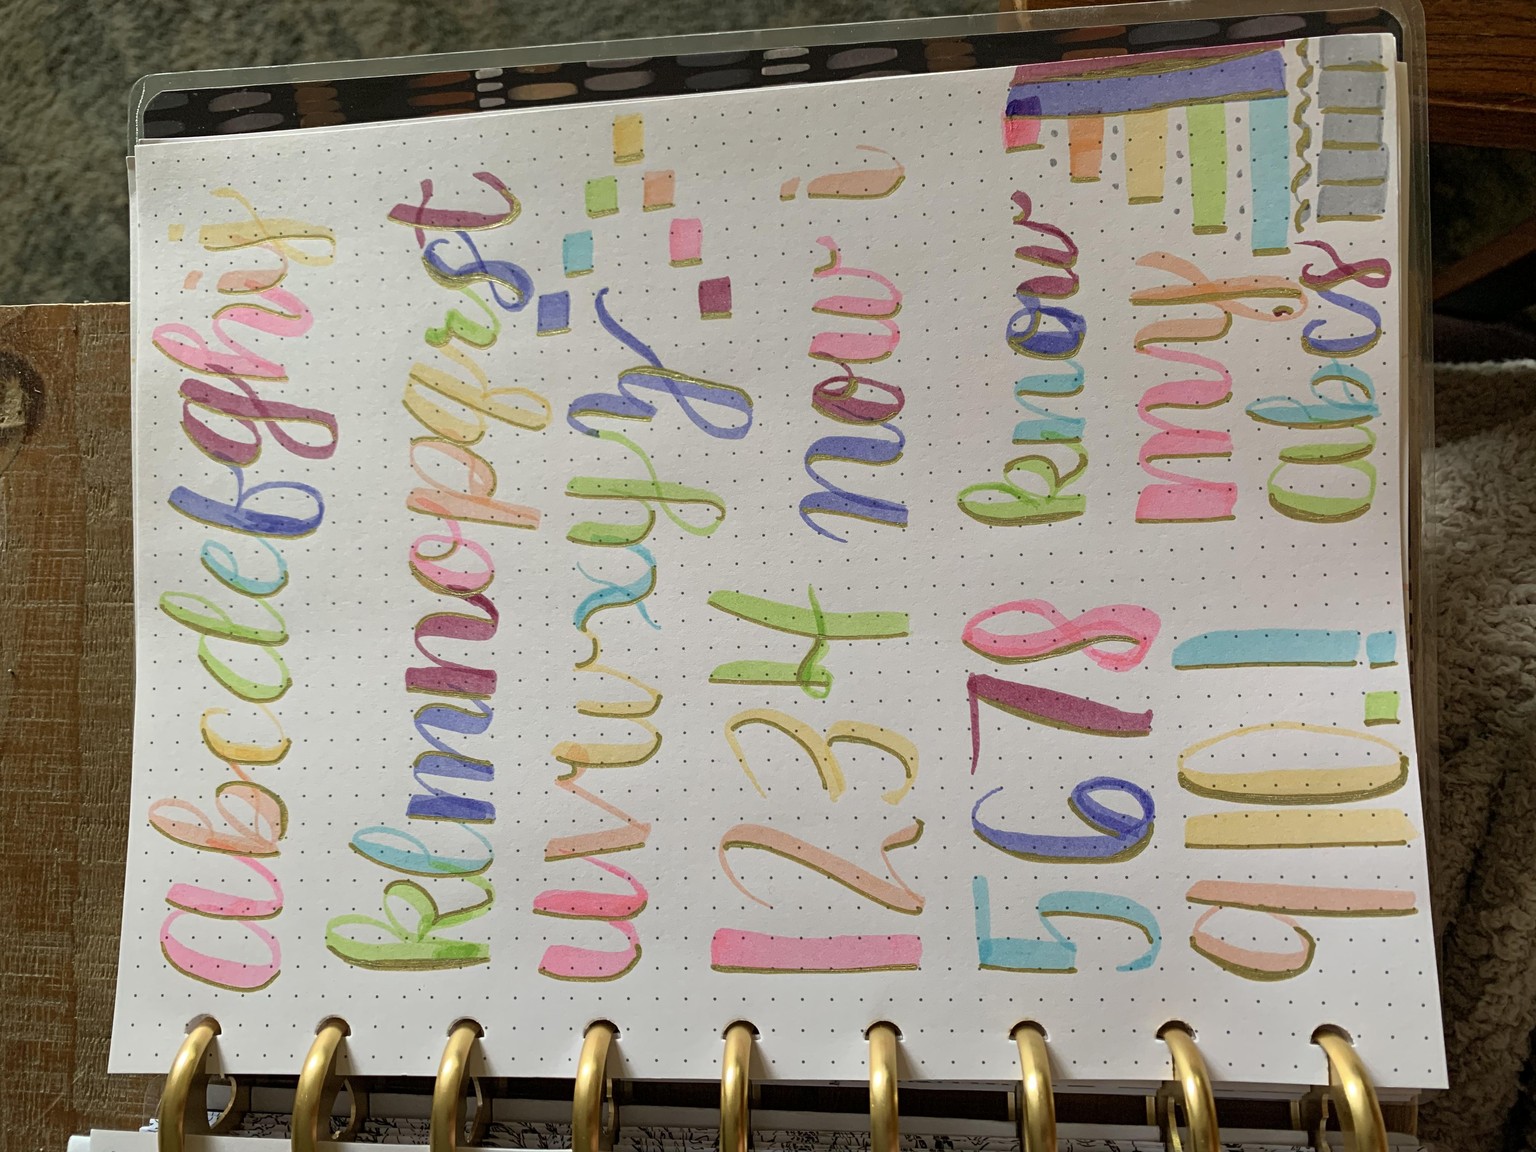 abcdefghij
klmnopqrst
uvwxyz
1234 now i
5678 know
910.! my
abcs